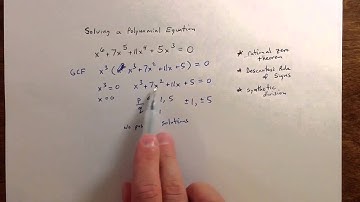 Solving a Polynomial Equation
x⁶ + 7x⁵ + 11x⁴ + 5x³ = 0
GCF x³ ( x³ + 7x² + 11x + 5) = 0
x³ = 0 x³ + 7x² + 11x + 5 = 0
x = 0 P 1, 5 ±1, ±5
q 1
No solutions
* rational zero
theorem
* Descartes Rule
of Signs
* synthetic
division